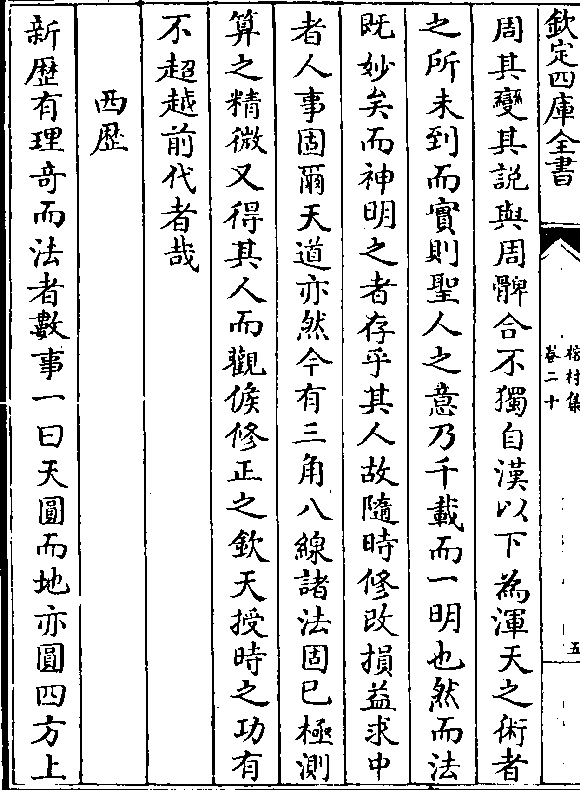 欽定四庫全書
榕村集
卷二十
五
周其變其説與周髀合不獨自漢以下為渾天之術者
之所未到而實則聖人之意乃千載而一明也然而法
既妙矣而神明之者存乎其人故隨時修改損益求中
者人事固爾天道亦然今有三角八線諸法固已極測
算之精微又得其人而觀候修正之欽天授時之功有
不超越前代者哉
西歴
新歴有理竒而法者數事一曰天圓而地亦圓四方上